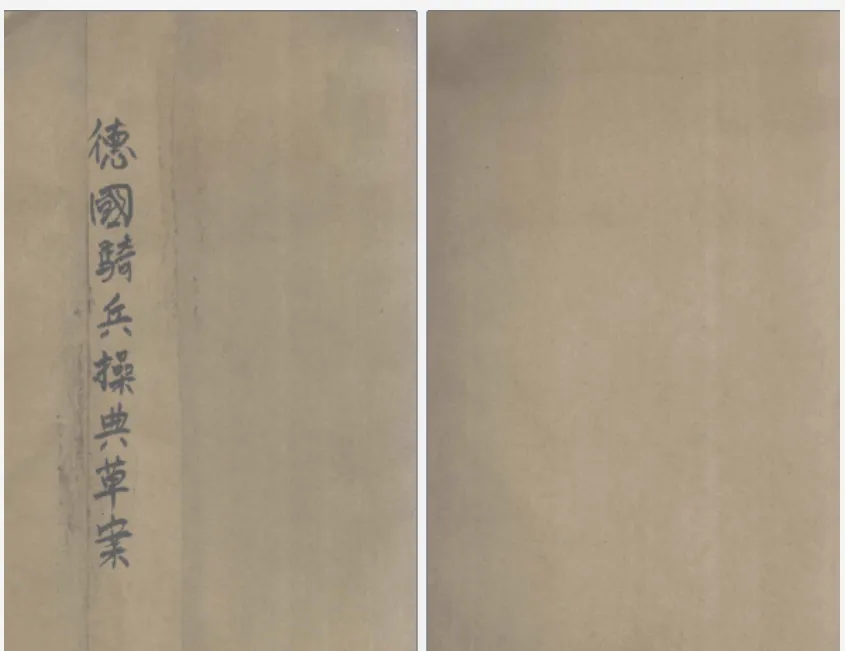 德國騎兵操典草案